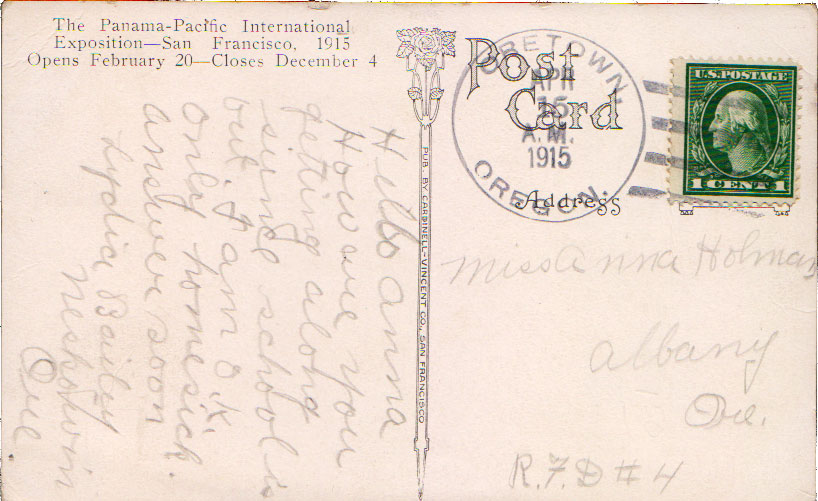 The Panama-Pacific International
Exposition—San Francisco, 1915
Opens February 20—Closes December 4
Post
Card
Address
ORETOWN,
APR
15
A.M.
1915
OREGON.
U.S. POSTAGE
1 CENT 1
PUB. BY CARDINELL-VINCENT CO., SAN FRANCISCO
Hello Anna
How are you
getting along
since school is
out. I am O.K.
only homesick.
answer soon
Lydia Bailey
Neskowin
Ore.
Miss Anna Holman
Albany
Ore.
R.F.D #4